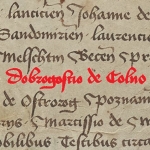 lancicien Johanne de
Sandomirien laurencio
Melschtin Becen
Dobrogostio de Colno
de Ostrorog Spoznam
Marcissio de
nobilibus Testibus circa